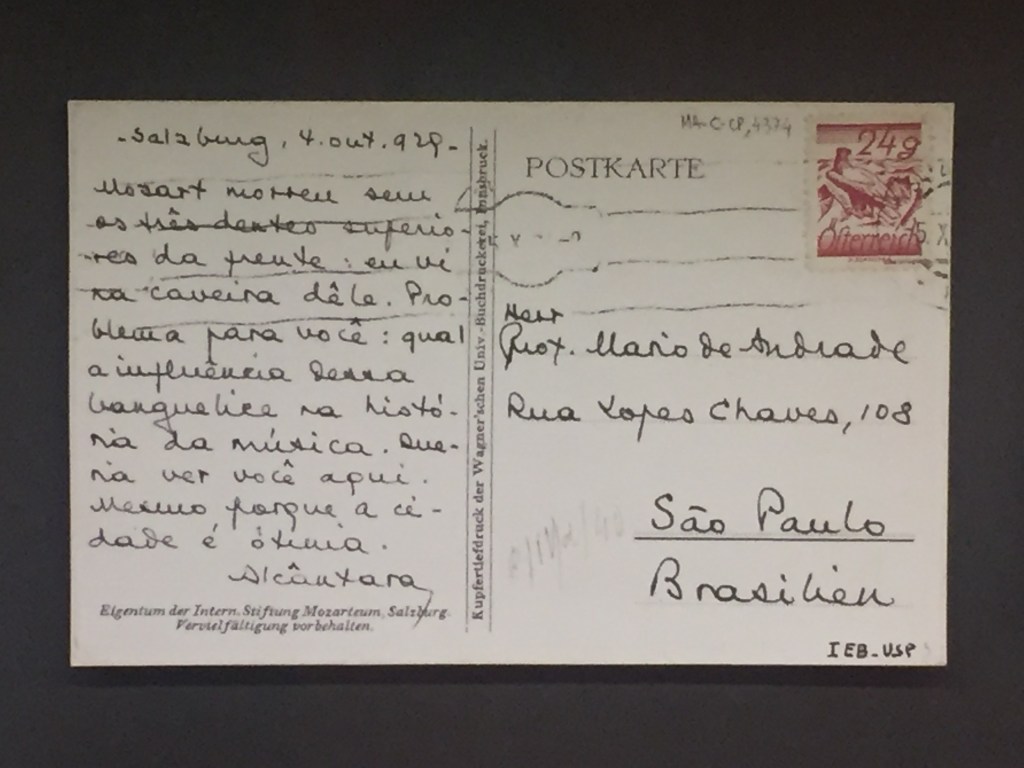 -Salzburg, 4. out. 929-
Mozart morreu sem
os três dentes superio-
res da frente: eu vi
na caveira dêle. Pro-
blema para você: qual
a influência dessa
banguelice na histó-
ria da música. Que-
ria ver você aqui.
Mesmo porque a ci-
dade é ótima.
Alcântara
Eigentum der Intern. Stiftung Mozarteum, Salzburg.
Vervielfältigung vorbehalten.
Kupfertiefdruck der Wagner'schen Univ.-Buchdruckerei, Innsbruck.
MA-C-CP, 4374
POSTKARTE
24g
Österreich
Herr
Prof. Mario de Andrade
Rua Lopes Chaves, 108
São Paulo
Brasilien
IEB-USP